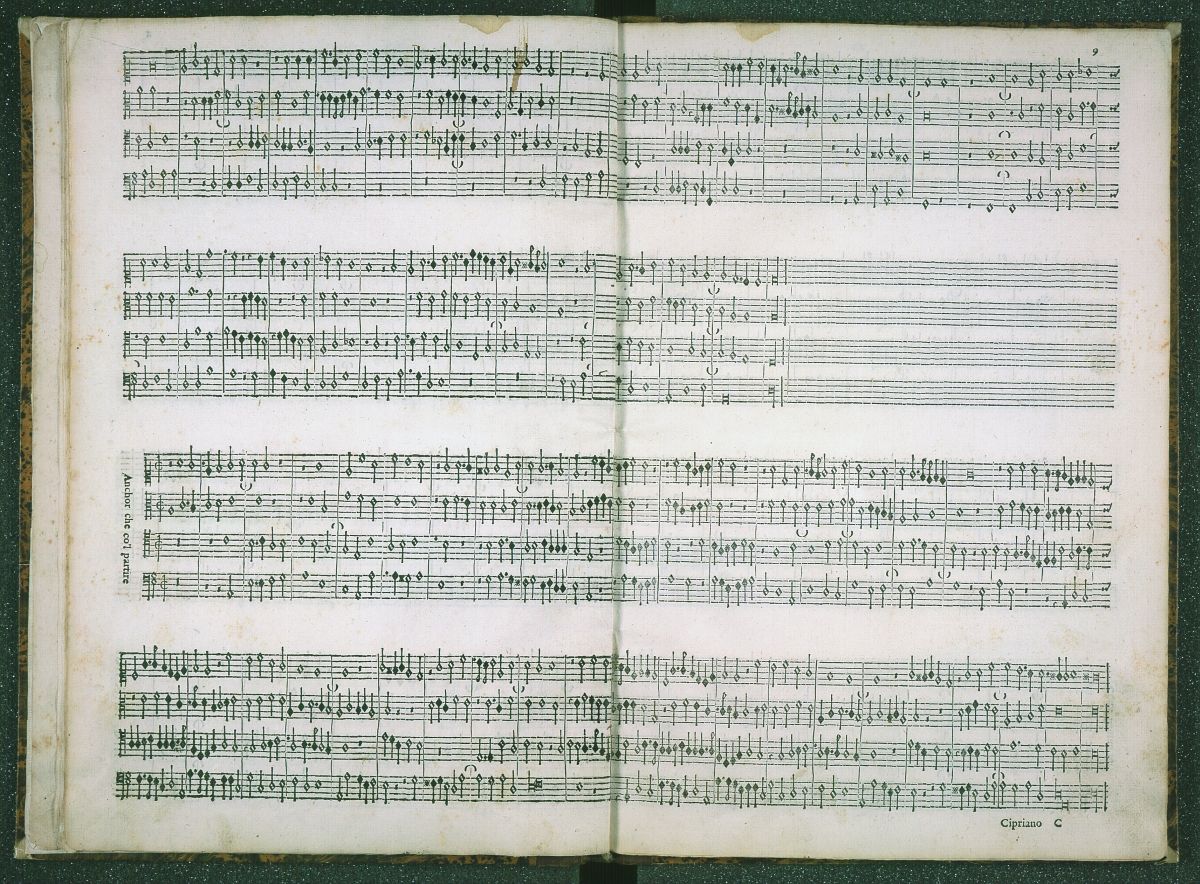 9
Anchor che co'l partire
Cipriano C